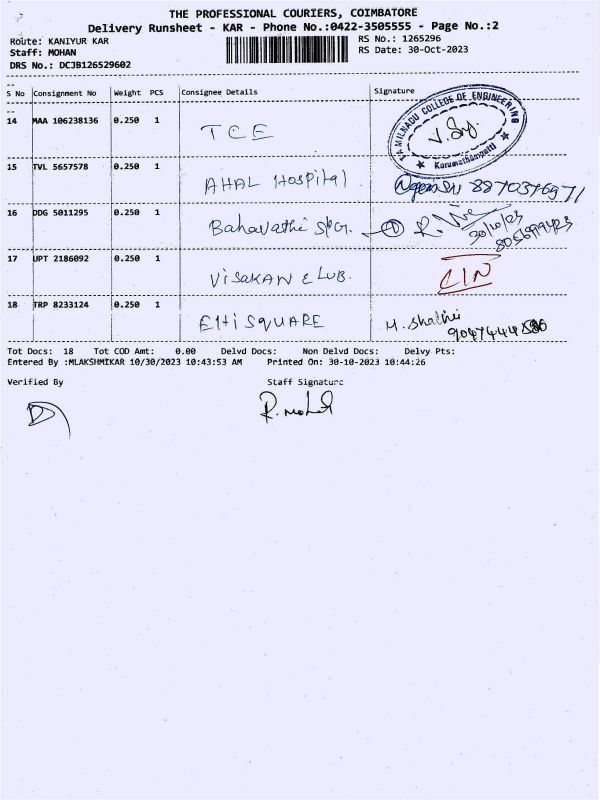 THE PROFESSIONAL COURIERS, COIMBATORE
Delivery Runsheet - KAR - Phone No.:0422-3505555 - Page No.:2
Route: KANIYUR KAR
RS No.: 1265296
Staff: MOHAN
RS Date: 30-Oct-2023
DRS No.: DCJB126529602
S No Consignment No Weight PCS Consignee Details Signature
14 MAA 106238136 0.250 1 TCE
TAMILNADU COLLEGE OF ENGINEERING
Karumathampatti
15 TVL 5657578 0.250 1 AHAL Hospital 8870376971
16 DDG 5011295 0.250 1 Bahavathi
30/10/23
17 UPT 2186092 0.250 1 VISAKAN
18 TRP 8233124 0.250 1 SQUARE M. Shathi
Tot Docs: 18 Tot COD Amt: 0.00 Delvd Docs: Non Delvd Docs: Delvy Pts:
Entered By :MLAKSHMIKAR 10/30/2023 10:43:53 AM Printed On: 30-10-2023 10:44:26
Verified By Staff Signature
R. Mohan